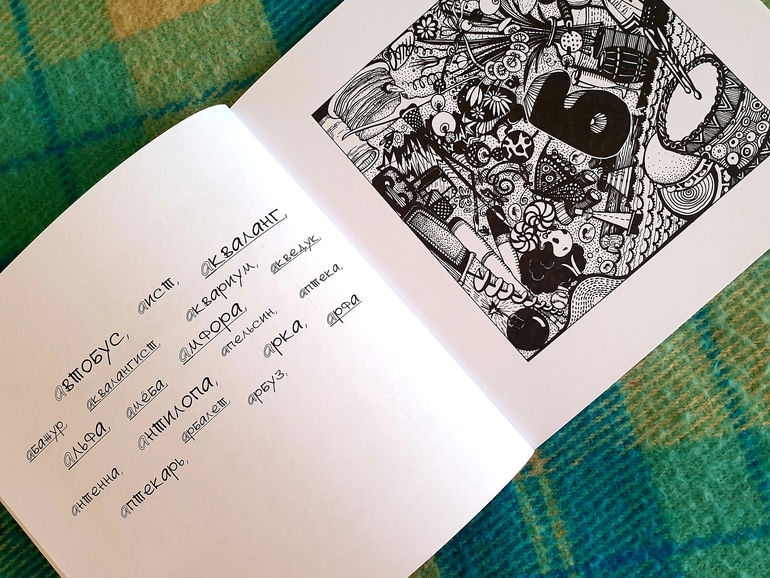 автобус, аист, акваланг,
абажур, аквалангист, аквариум, акведук,
альфа, амёба, амфора, апельсин, аптека,
антенна, антилопа, арка, арфа
аптекарь, арбалет, арбуз,
Б